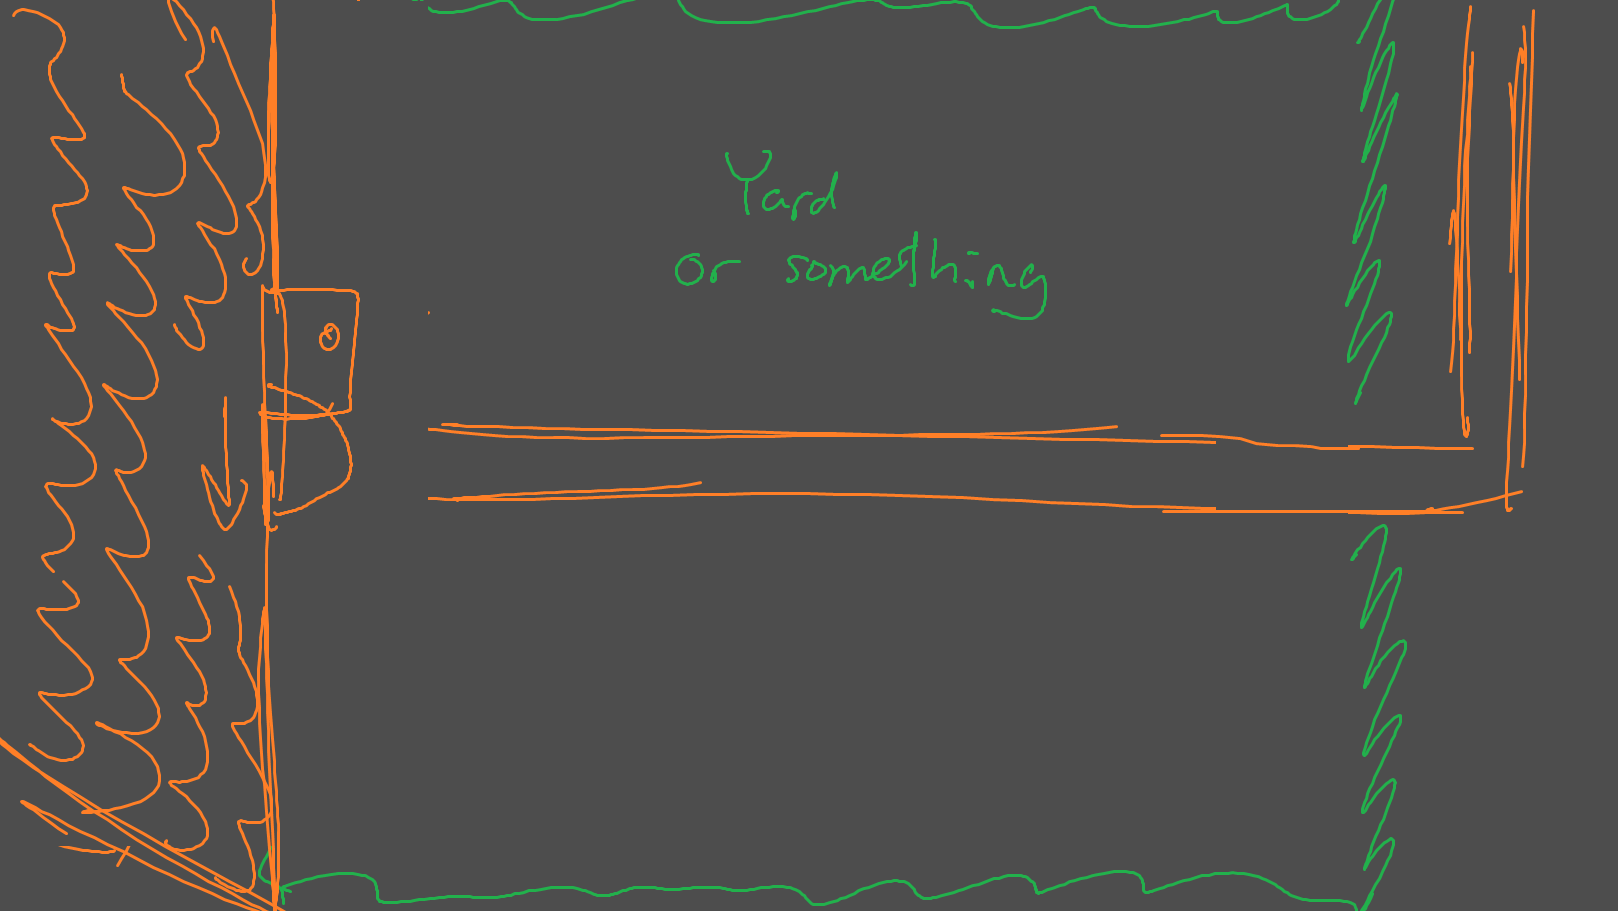 Yard
or something